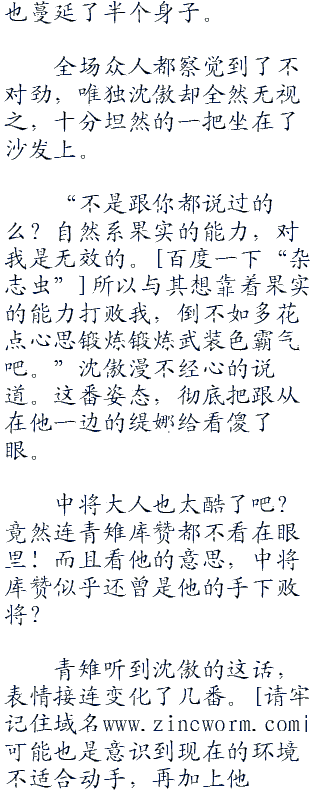 也蔓延了半个身子。
全场众人都察觉到了不
对劲，唯独沈傲却全然无视
之，十分坦然的一把坐在了
沙发上。
“不是跟你都说过的
么？自然系果实的能力，对
我是无效的。[百度一下“杂
志虫”]所以与其想靠着果实
的能力打败我，倒不如多花
点心思锻炼锻炼武装色霸气
吧。”沈傲漫不经心的说
道。这番姿态，彻底把跟从
在他一边的缇娜给看傻了
眼。
中将大人也太酷了吧？
竟然连青雉库赞都不看在眼
里！而且看他的意思，中将
库赞似乎还曾是他的手下败
将？
青雉听到沈傲的这话，
表情接连变化了几番。[请牢
记住域名www.zincworm.com]
可能也是意识到现在的环境
不适合动手，再加上他